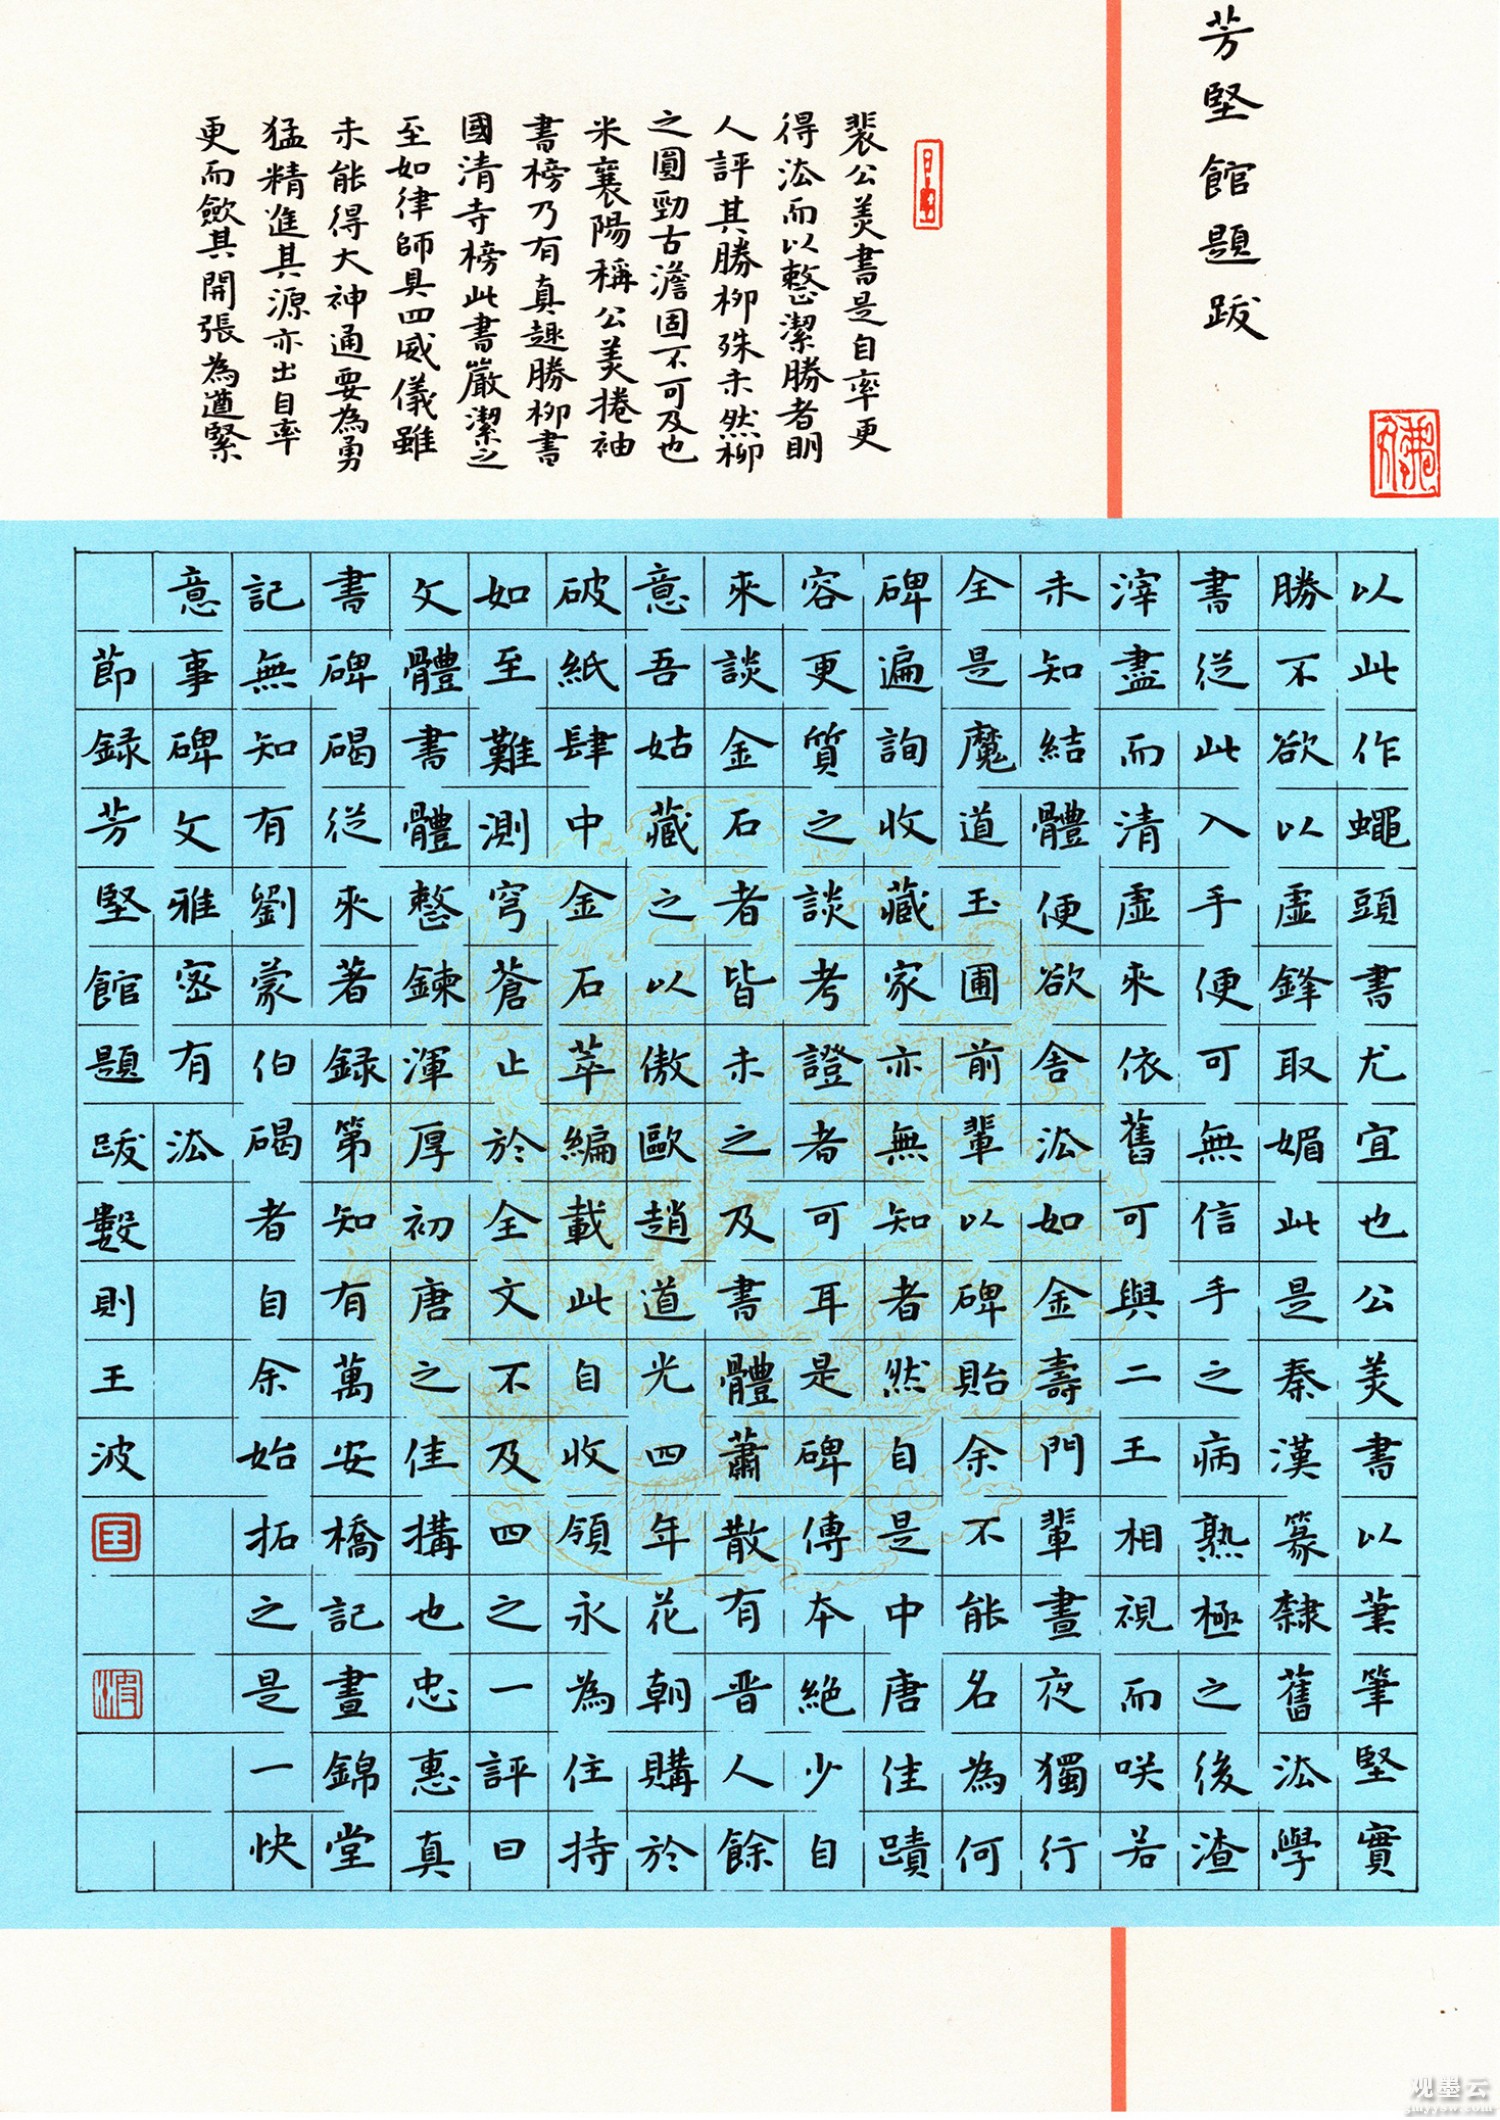 芳堅館題跋
裴公美書是自率更
得法而以整潔勝者明
人評其勝柳殊未然柳
之圓勁古澹固不可及也
米襄陽稱公美捲袖
書榜乃有真趣勝柳書
國清寺榜此書嚴潔之
至如律師具四威儀雖
未能得大神通要為勇
猛精進其源亦出自率
更而歛其開張為遒緊
以此作蠅頭書尤宜也公美書以筆筆堅實
勝不欲以虛鋒取媚此是秦漢篆隸舊法學
書從此入手便可無信手之病熟極之後渣
滓盡而清虛來依舊可與二王相視而咲若
未知結體便欲舍法如金壽門輩晝夜獨行
全是魔道玉圃前輩以碑貽余不能名為何
碑遍詢收藏家亦無知者然自是中唐佳蹟
容更質之談考證者可耳是碑傳本絕少自
來談金石者皆未之及書體蕭散有晋人餘
意吾姑藏之以傲歐趙道光四年花朝購於
破紙肆中金石萃編載此自收領永為住持
如至難測穹蒼止於全文不及四之一評曰
文體書體整鍊渾厚初唐之佳搆也忠惠真
書碑碣從來著録第知有萬安橋記晝錦堂
記無知有劉蒙伯碣者自余始拓之是一快
意事碑文雅密有法
節録芳堅館題跋數則王波
观墨云